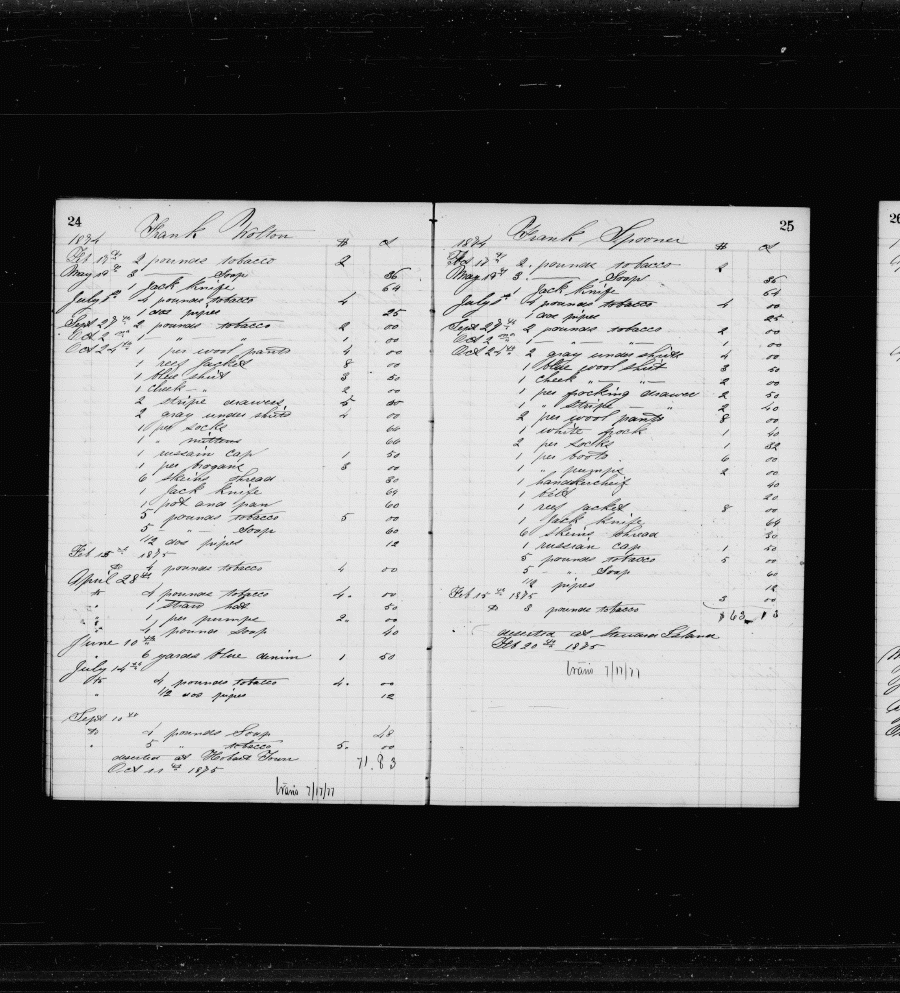 24
Frank Wolton
1874 $ cts
Feb 17th 2 pounds tobacco 2
May 19th 3 — Soap 36
1 Jack Knife 64
July 5th 4 pounds tobacco 4 00
1 dos pipes 25
Sept 27th 2 pounds tobacco 2 00
Oct 2nd 1 — " — " — 1 00
Oct 24th 1 per wool pants 4 00
1 reef Jacket 8 00
1 blue shirt 3 50
1 check — " 2 00
2 stripe drawers 5
2 gray under shirts 4 00
1 per socks 66
1 " mittens 66
1 russain cap 1 50
1 per brogans 3 00
6 skeins thread 30
1 Jack Knife 64
1 pot and pan 60
5 pounds tobacco 5 00
5 — " — Soap 60
1/2 dos pipes 12
Feb 15th 1875
to 4 pounds tobacco 4 00
April 28th
to 4 pounds tobacco 4. 00
" 1 straw hat 50
" 1 per pumps 2. 00
" 4 pounds soap 40
June 10th
" 6 yards blue denim 1 50
July 14th
to 4 pounds tobacco 4. 00
" 1/2 dos pipes 12
Sept 10th
to 4 pounds Soap 48
" 5 " tobacco 5. 00
deserted at Hobart Town 71.83
Oct 11th 1875
trans 7/17/77
25
Frank Spooner
1874 $ cts
Feb 17th 2 pounds tobacco 2
May 19th 3 — Soap 36
1 Jack Knife 64
July 5th 4 pounds tobacco 4 00
1 dos pipes 25
Sept 27th 2 pounds tobacco 2 00
Oct 2nd 1 — " — " — 1 00
Oct 24th 2 gray under shirts 4 00
1 blue wool shirt 3 50
1 check — " — " — 2 00
1 per frocking drawer 2 50
1 " stripe — " 2 40
2 per wool pants 8 00
1 white frock 1 40
2 per socks 1 32
1 per boots 6 00
1 " pumps 2 00
1 handkercheif 40
1 belt 20
1 reef jacket 8 00
1 Jack Knife 64
6 skeins thread 30
1 russian cap 1 50
5 pounds tobacco 5 00
5 — " Soap 60
1/2 pipes 12
Feb 15th 1875 3 00
to 3 pounds tobacco $63.13
deserted at Island
Feb 20th 1875
trans 7/17/77
26